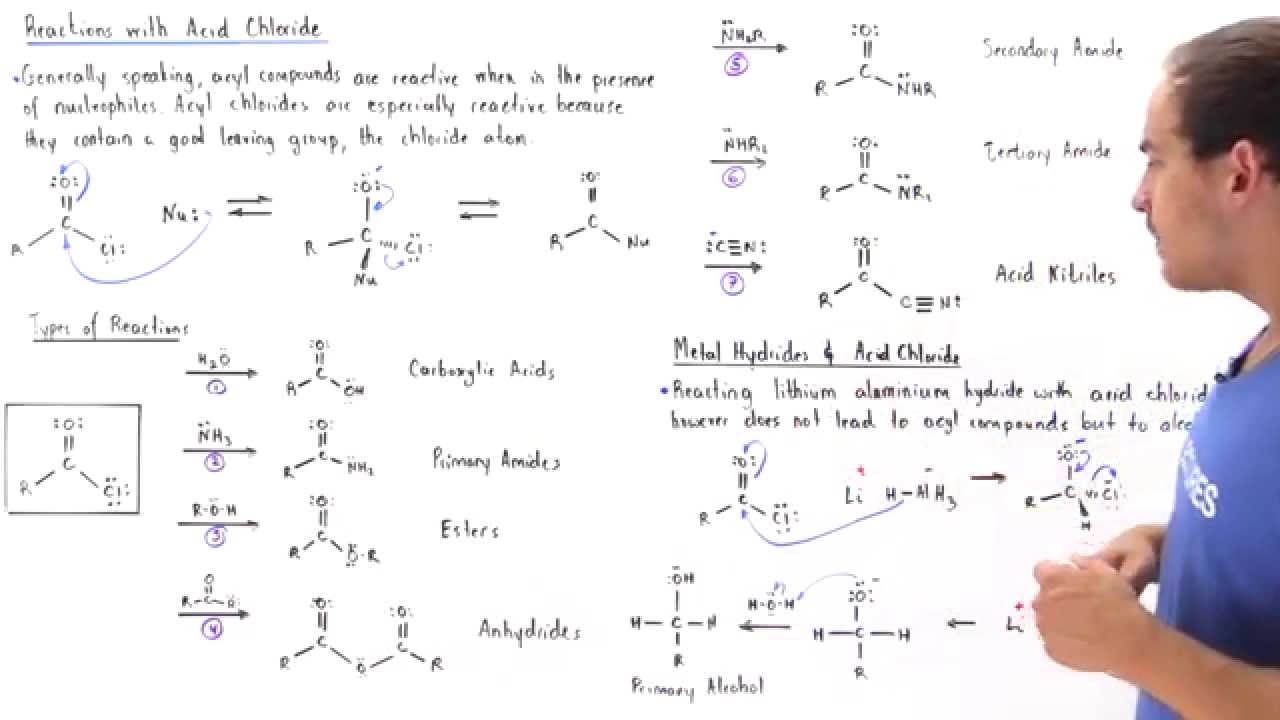 Reactions with Acid Chloride
• Generally speaking, acyl compounds are reactive when in the presence
of nucleophiles. Acyl chlorides are especially reactive because
they contain a good leaving group, the chloride atom.
:O: C R Cl: Nu:
:O: R C Cl: Nu
:O: R C Nu
Types of Reactions
:O: C R Cl:
H2O 1 :O: R C OH Carboxylic Acids
NH3 2 :O: R C NH2 Primary Amides
R-O-H 3 :O: R C O-R Esters
O R-C 4 :O: R C O :O: C R Anhydrides
NH2R 5 :O: R C NHR Secondary Amide
NHR2 6 O R C NR2 Tertiary Amide
:C≡N: 7 :O: R C C≡N: Acid Nitriles
Metal Hydrides & Acid Chloride
• Reacting lithium aluminium hydride with acid
however does not lead to acyl compounds but to
:O: R C Cl: Li+ H-AlH3 :O: R C Cl: H
:OH H-C-H R H-O-H :O: H-C-H R Li+
Primary Alcohol